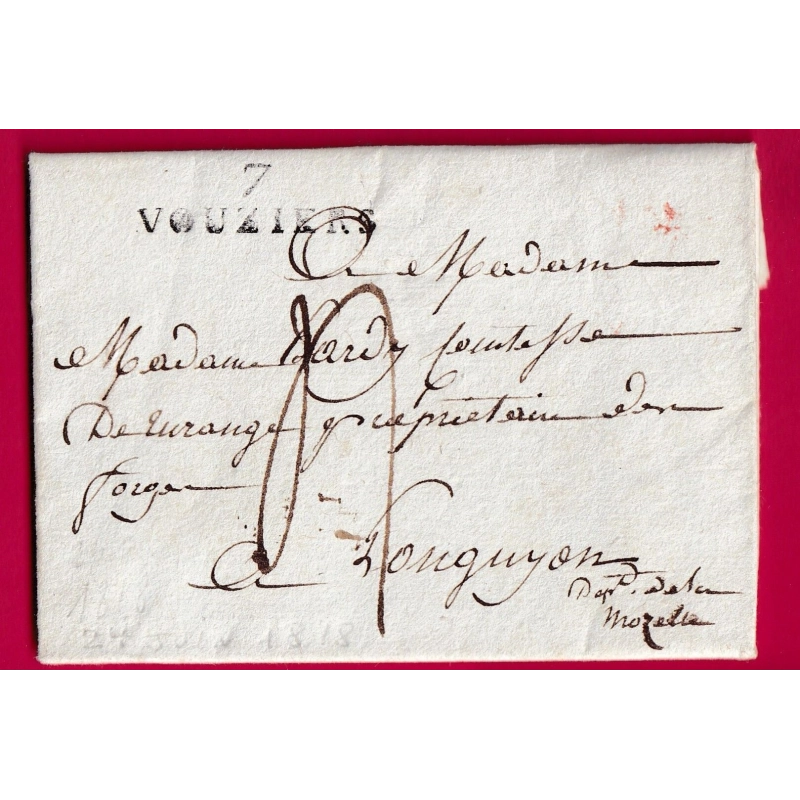 7
VOUZIERS
A Madame
Madame Hardy comtesse
De Turange propriétaire des
forges
a Longuyon
Dept. de la
Mozelle